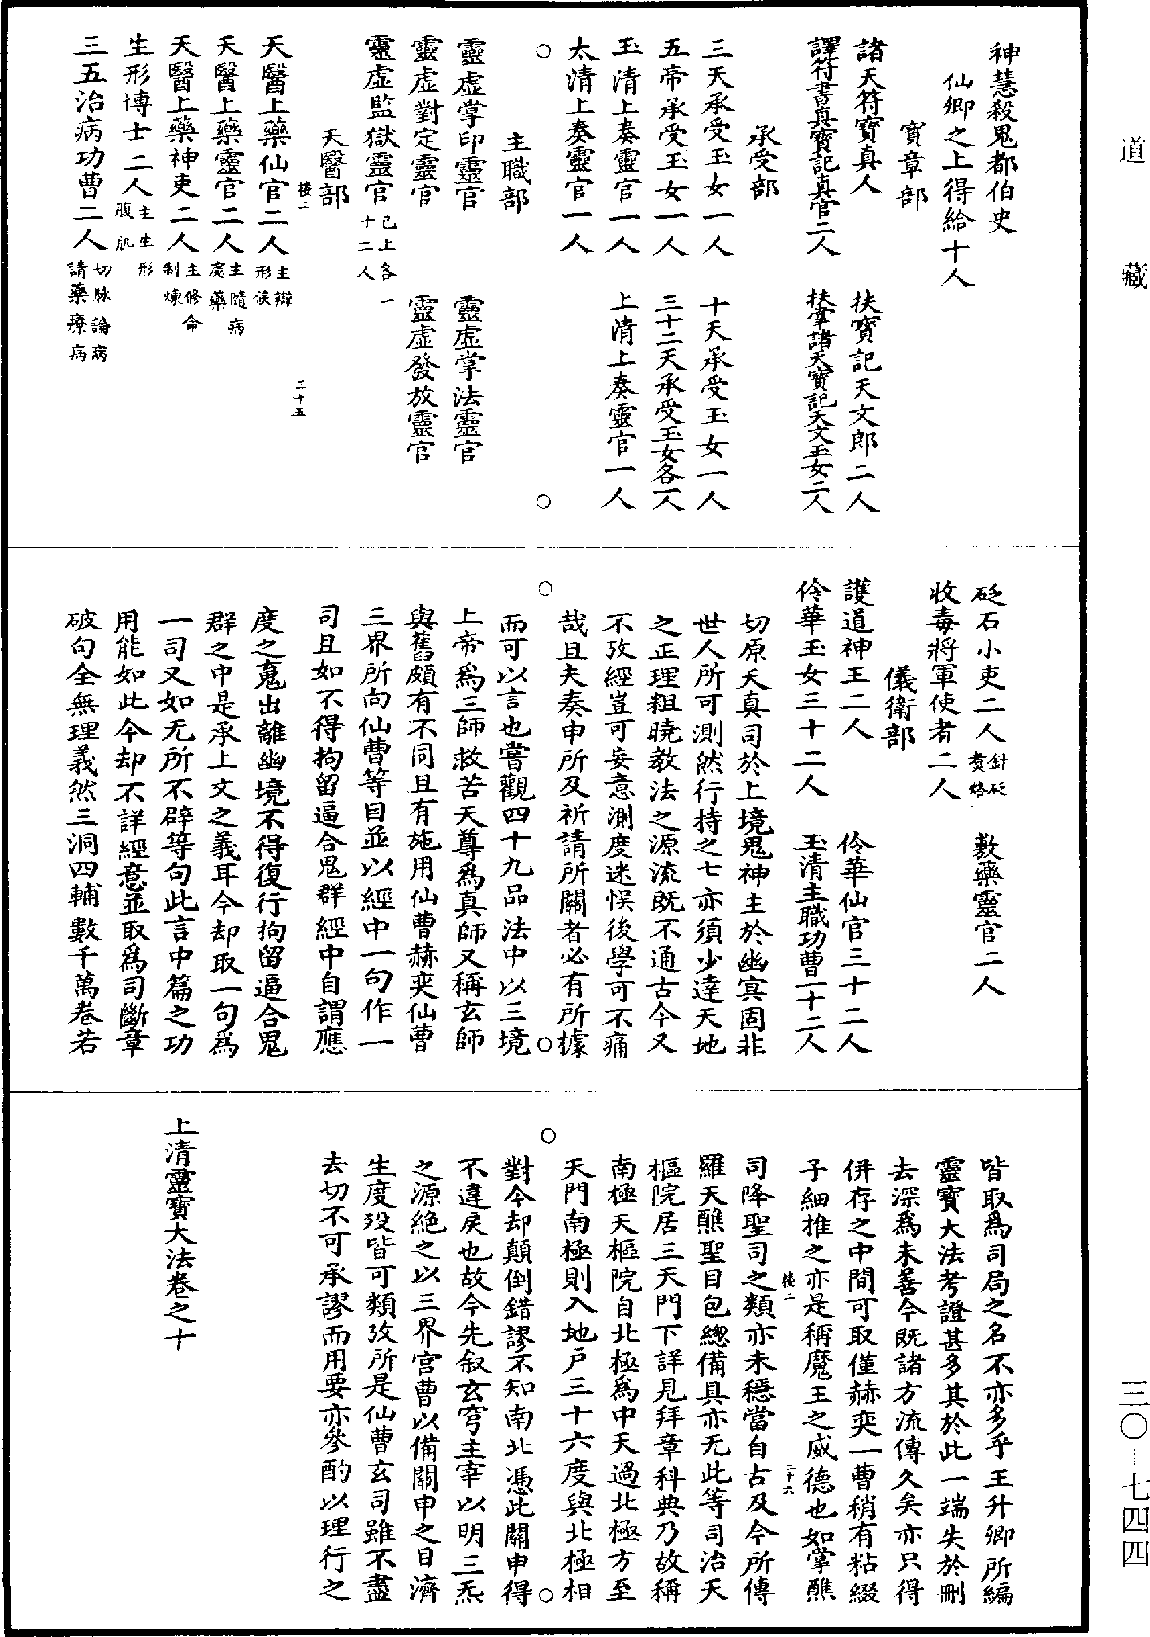 道藏
三〇—七四四
神慧殺鬼都伯史
仙卿之上得給十人
寶章部
諸天符寶真人　扶寶記天文郎二人
譯符書真寶記真官二人　扶掌諸天寶記天文玉女二人
承受部
三天承受玉女一人　十天承受玉女一人
五帝承受玉女一人　三十二天承受玉女各一人
玉清上奏靈官一人　上清上奏靈官一人
太清上奏靈官一人
主職部
靈虛掌印靈官　靈虛掌法靈官
靈虛對定靈官　靈虛發放靈官
靈虛監獄靈官已上各一十二人
天醫部
三十五
天醫上藥仙官二人主辯形候
天醫上藥靈官二人主隨病處藥
天醫上藥神吏二人主修合制煉
生形博士二人主生形腹肌
三五治病功曹二人切脉論病請藥療病
砭石小吏二人針砭　敷藥靈官二人
收毒將軍使者二人
儀衛部
護道神王二人　伶華仙官三十二人
伶華玉女三十二人　玉清主職功曹一十二人
切原天真司於上境鬼神主於幽冥固非
世人所可測然行持之士亦須少達天地
之正理粗曉教法之源流既不通古今又
不攷經豈可妄意測度迷悞後學可不痛
哉且夫奏申所及祈請所關者必有所據
而可以言也嘗觀四十九品法中以三境
上帝爲三師救苦天尊爲真師又稱玄師
與舊頗有不同且有施用仙曹赫奕仙曹
三界所向仙曹等目並以經中一句作一
司且如不得拘留逼合鬼群經中自謂應
度之䰟出離幽境不得復行拘留逼合鬼
群之中是承上文之義耳今却取一句爲
一司又如无所不辟等句此言中篇之功
用能如此今却不詳經意並取爲司斷章
破句全無理義然三洞四輔數千萬卷若
皆取爲司局之名不亦多乎王升卿所編
靈寶大法考證甚多其於此一端失於刪
去深爲未善今既諸方流傳久矣亦只得
併存之中間可取僅赫奕一曹稍有粘綴
子細推之亦是稱魔王之威德也如掌醮
司降聖司之類亦未穩當自古及今所傳
三十六
羅天醮聖目包總備具亦无此等司治天
樞院居三天門下詳見拜章科典乃故稱
南極天樞院自北極爲中天過北極方至
天門南極則入地戶三十六度與北極相
對今却顛倒錯謬不知南北憑此關申得
不違戾也故今先叙玄穹主宰以明三炁
之源絶之以三界宫曹以備關申之目濟
生度歿皆可類攷所是仙曹玄司雖不盡
去切不可承謬而用要亦參酌以理行之
上清靈寶大法卷之十